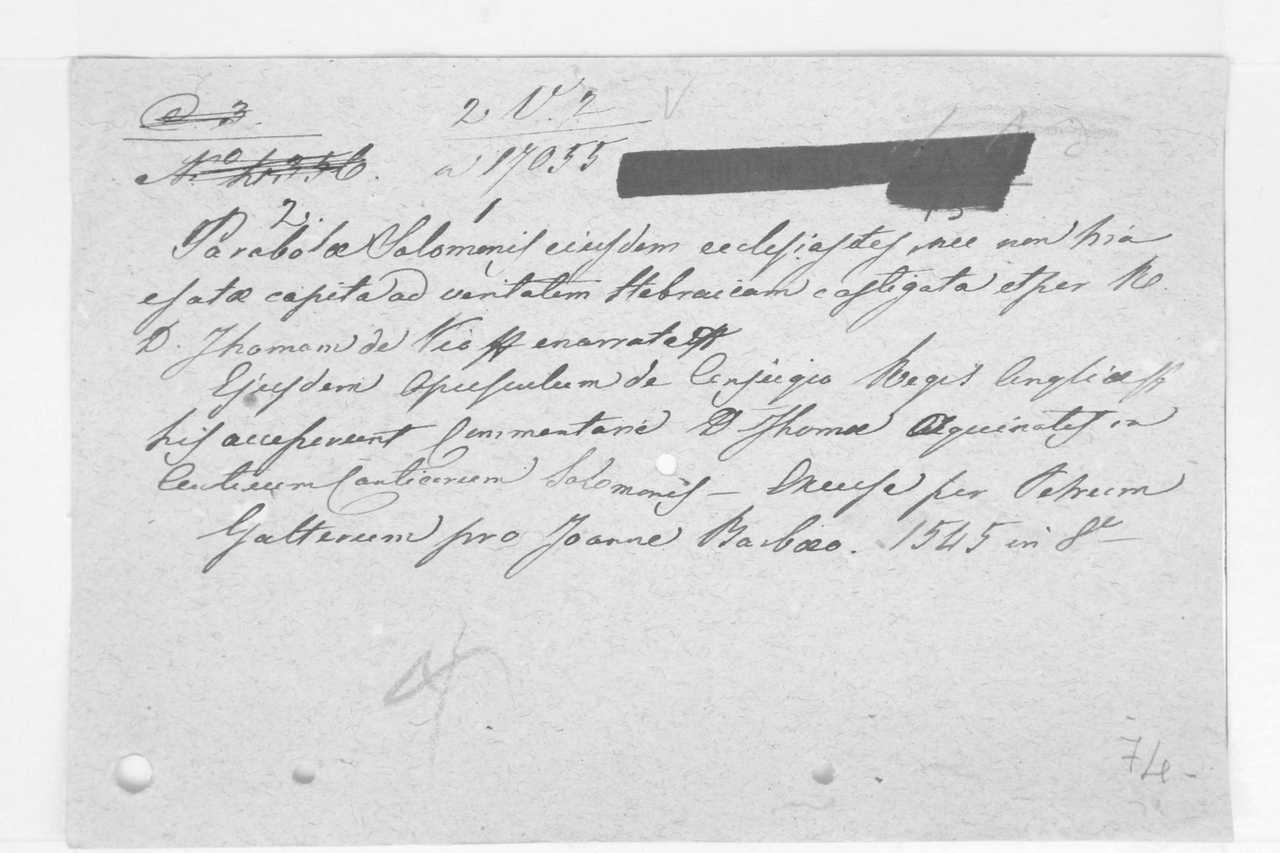 C. 3.
2 V. 2
No
a 17055
2. 1
Parabolæ Salomonis eiusdem ecclesiastes, nec non tria
esatæ capita ad veritatem Hebraicam castigata et per R.
D. Thomam de Vio enarrata
Ejusdem Opusculum de Conjugio Regis Angliæ
his accesserunt Commentarii D Thomæ Aquinates in
Canticum Canticorum Salomonis – Excuse per Petrum
Galterum pro Joanne Barbæo. 1545 in 8º
74